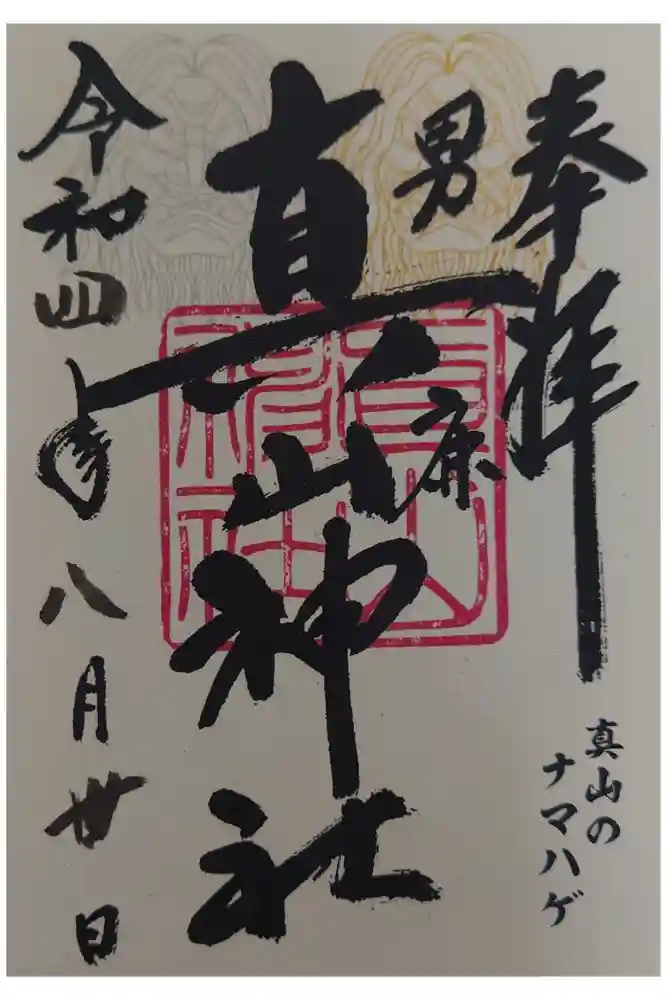 奉拝
真山の
ナマハゲ
男鹿
真山神社
令和四年八月廿日